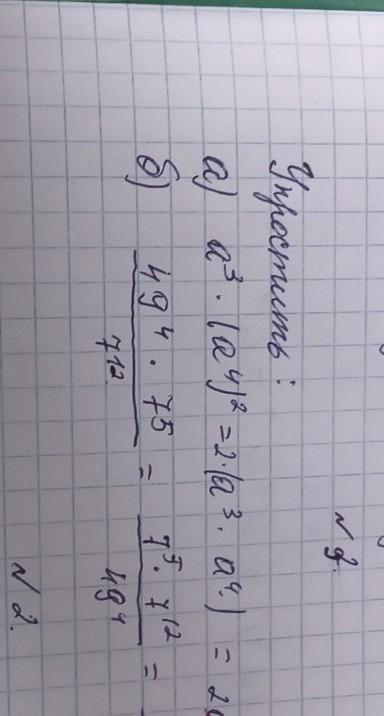 Упростить:
а) a³ · (a⁴)² = 2·(a³ · a⁴) = 2
б) 49⁴ · 7⁵ / 7¹² = 7⁵ · 7¹² / 49⁴ =
N 2.